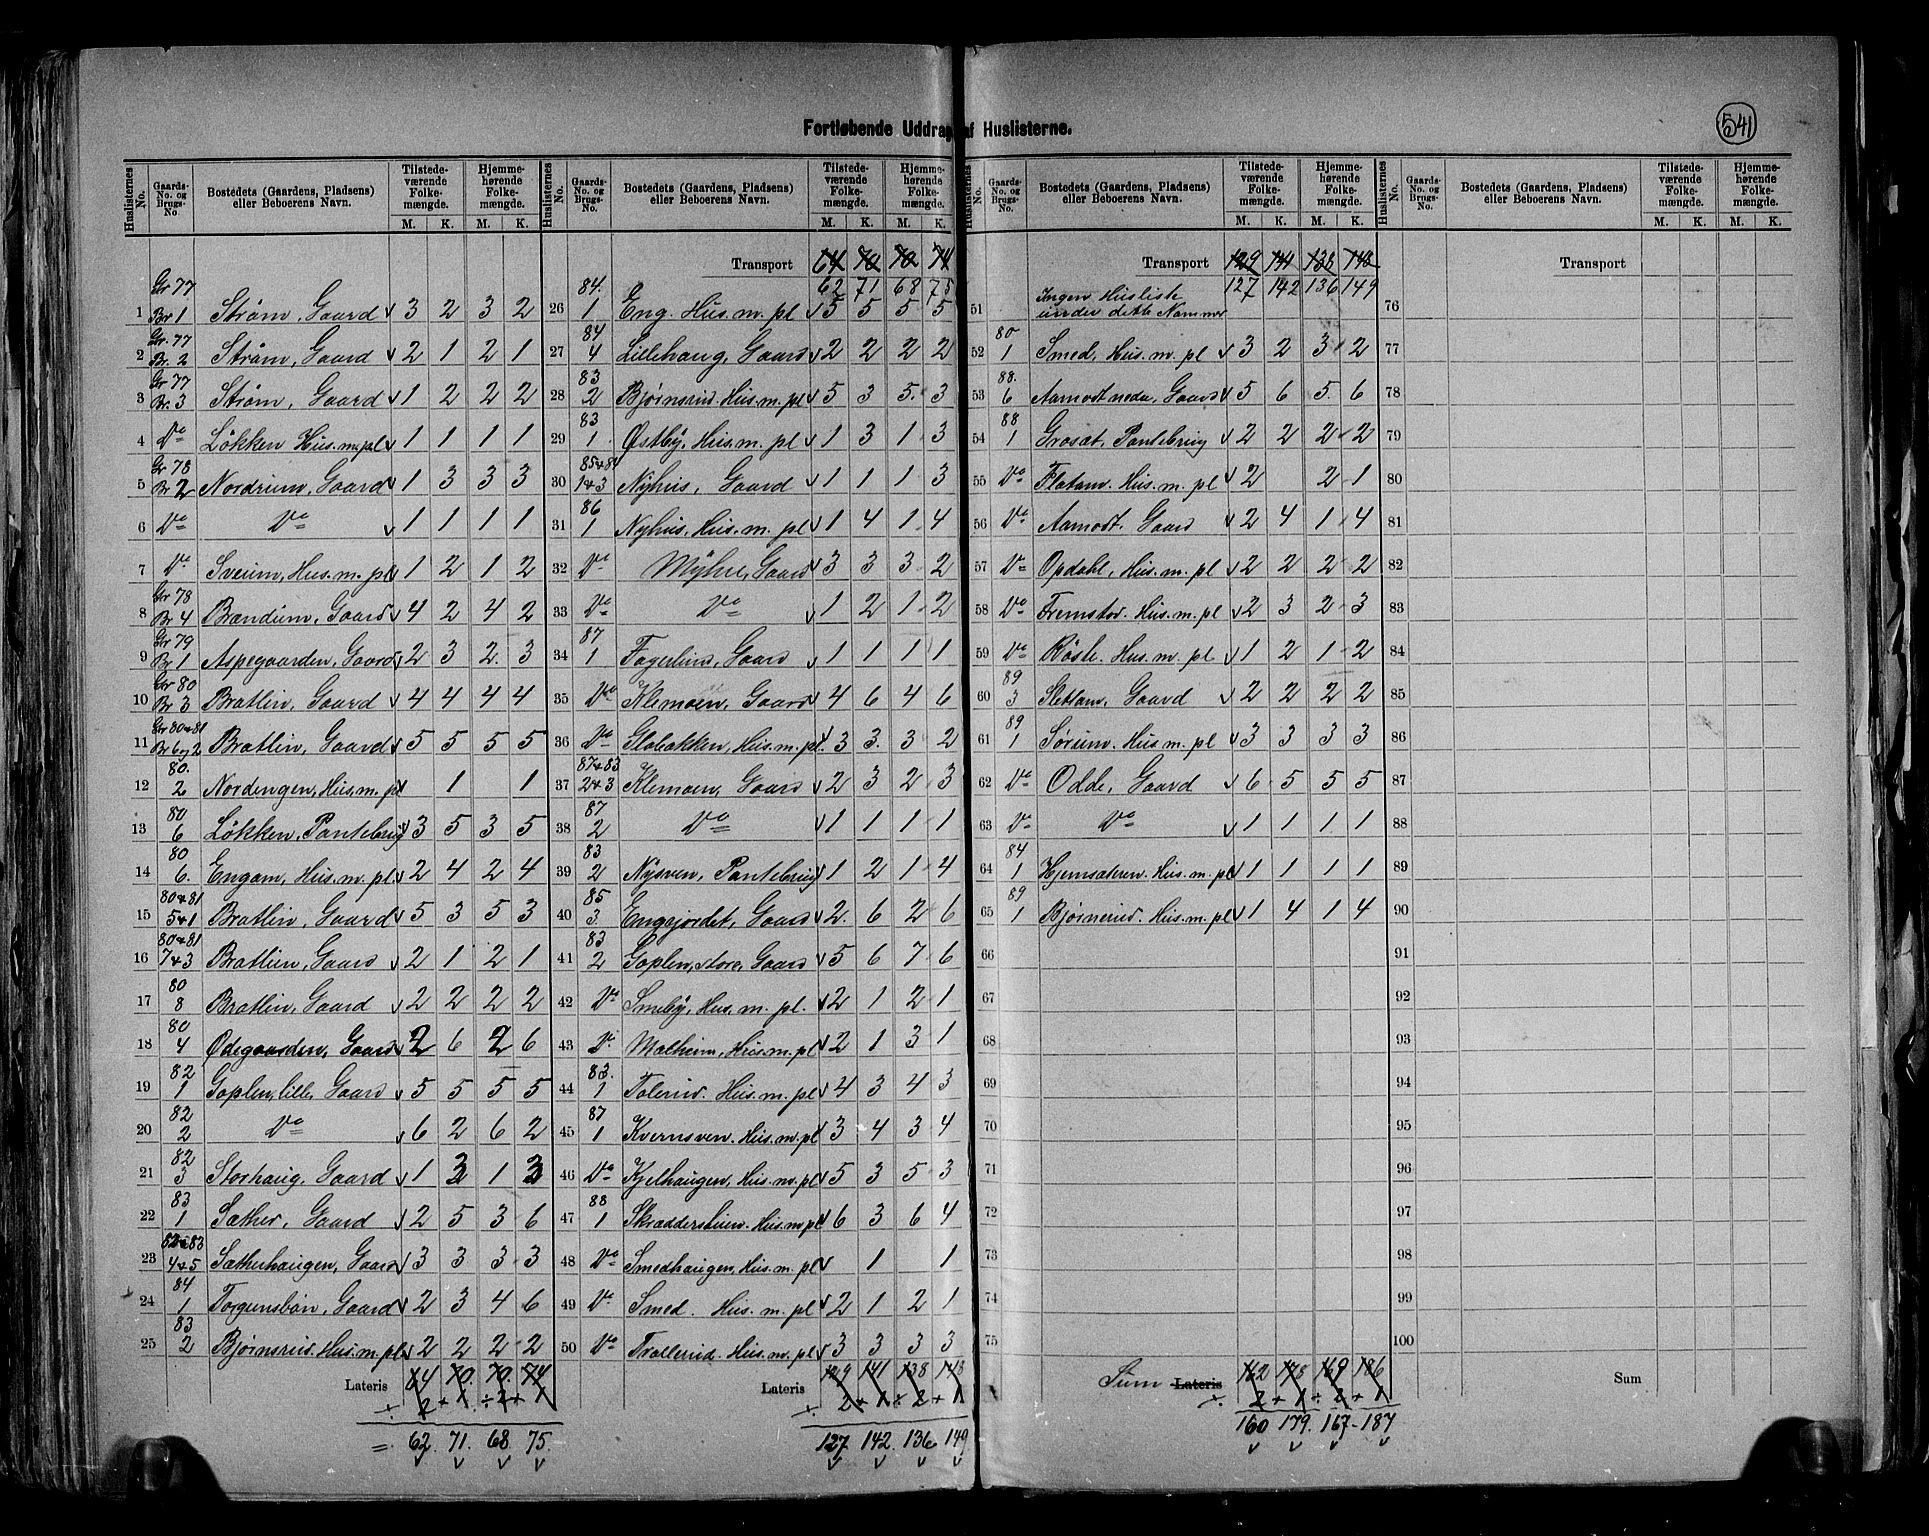 541
Fortløbende Uddrag af Huslisterne.
Huslisternes No. | Gaards-No. og Brugs-No. | Bostedets (Gaardens, Pladsens) eller Beboerens Navn. | Tilstedeværende Folkemængde. M. K. | Hjemmehørende Folkemængde. M. K.
1 Gr 77 Br 1 Strøm, Gaard 3 2 3 2
2 Gr. 77 Br. 2 Strøm, Gaard 2 1 2 1
3 Gr 77 Br. 3 Strøm, Gaard 1 2 2 2
4 Do Løkken Hus.m.pl 1 1 1 1
5 Gr 78 Br 2 Nordrum, Gaard 1 3 3 3
6 Do Do 1 1 1 1
7 Do Sveum, Hus.m.pl 1 2 1 2
8 Gr 78 Br 4 Brændum, Gaard 4 2 4 2
9 Gr 79 Br 1 Aspegaarden, Gaard 2 3 2 3
10 Gr 80 Br 3 Bratlin, Gaard 4 4 4 4
11 Gr 80+81 Br 6 og 2 Bratlin, Gaard 5 5 5 5
12 80. 2 Nordengen, Hus.m.pl 1 1
13 80 6 Løkken, Pantebrug 3 5 3 5
14 80 6. Engam, Hus.m.pl. 2 4 2 4
15 80+81 5+1 Bratlin, Gaard 5 3 5 3
16 80+81 7+3 Bratlien, Gaard 2 1 2 1
17 80 8 Bratlin, Gaard 2 2 2 2
18 80 4 Ødegaarden, Gaard 2 6 2 6
19 82 1 Goplen, lille, Gaard 5 5 5 5
20 82 2 Do 6 2 6 2
21 82 3 Storhaug, Gaard 1 3 1 3
22 83 1 Sæther, Gaard 2 5 3 6
23 82+83 4+5 Sætherhaugen, Gaard 3 3 3 3
24 84 1 Torgunsbøn, Gaard 2 3 4 6
25 83 2 Bjørnsrud. Hus.m.pl. 2 2 2 2
Lateris 64 70. 70. 74
÷ 2 + 1 ÷ 2 + 1
= 62. 71. 68. 75.
Transport 64 70 70 74
62 71 68 75
26 84. 1 Eng. Hus.m.pl 5 5 5 5
27 84 4 Lillehaug, Gaard 2 2 2 2
28 83 2 Bjørnsrud. Hus.m.pl 5 3 5. 3
29 83 1. Østby, Hus.m.pl 1 3 1 3
30 85+84 1+3 Nyhus, Gaard 1 1 1 3
31 86 1 Nyhus, Hus.m.pl 1 4 1 4
32 Do Myhre, Gaard 3 3 3 2
33 Do Do 1 2 1 2
34 87 1 Fagerlund, Gaard 1 1 1 1
35 Do Klemoen, Gaard 4 6 4 6
36 Do Globakken, Hus.m.pl. 3 3. 3 2
37 87+83 2+3 Klemoen, Gaard 2 3 2 3
38 87 2 Do 1 1 1 1
39 83 2 Nysven, Pantebrug 1 2 1 4
40 85 3. Engejordet, Gaard 2. 6 2 6
41 83 2 Goplen, store, Gaard 5 6 7 6
42 Do Smeby, Hus.m.pl. 2 1 2 1
43 Do Malheim, Hus.m.pl 2 1 3 1
44 83. 1 Tolerud. Hus.m.pl 4 3 4 3
45 87 1 Kvernsven. Hus.m.pl 3 4 3 4
46 Do Kjelhaugen, Hus.m.pl 5 3 5 3
47 88 1 Skræddershuen. Hus.m.pl 6 3 6 4
48 Do Smedhaugen, Hus.m.pl 1 1
49 Do Smed. Hus.m.pl 2 1 2 1
50 Do Trollerud. Hus.m.pl 3 3 3 3
Lateris 129 141 138 148
÷ 2 + 1 ÷ 2 + 1
127 142. 136 149
Transport 129 141 138 148
127 142 136 149
51 Ingen Husliste under dette Nummer
52 80 1 Smed, Hus.m.pl 3 2 3 2
53 88. 6 Aamodt nedre, Gaard 5 6 5. 6
54 88 1 Grosæt, Pantebrug 2 2 2 2
55 Do Flatam. Hus.m.pl 2 2 1
56 Do Aamodt. Gaard 2 4 1 4
57 Do Opdahl, Hus.m.pl 2 2 2 2
58 Do Fremstor. Hus.m.pl 2 3 2 3
59 Do Røsle. Hus.m.pl 1 2 1 2
60 89 3 Slettam, Gaard 2 2 2 2
61 89 1 Sørum. Hus.m.pl 3 3 3 3
62 Do Odde, Gaard 6 5 5 5
63 Do Do 1 1 1 1
64 84 1 Hjemsæteren. Hus.m.pl 1 1 1 1
65 89 1 Bjørnerud. Hus.m.pl 1 4 1 4
66
67
68
69
70
71
72
73
74
75
Sum Lateris 162 178 169 186
÷ 2 + 1 ÷ 2 + 1
160 179. 167 187
Transport
76
77
78
79
80
81
82
83
84
85
86
87
88
89
90
91
92
93
94
95
96
97
98
99
100
Sum